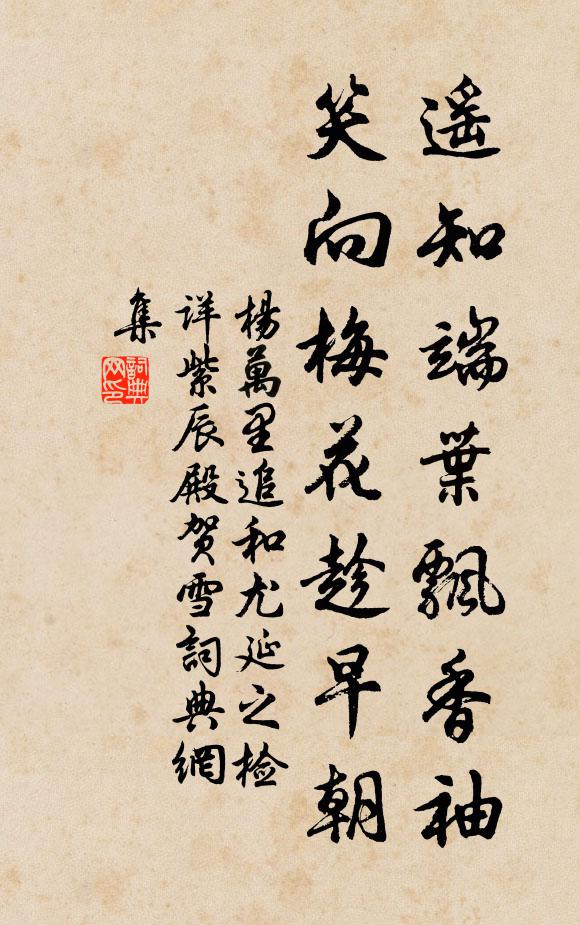 遥知端葉飄香袖
笑向梅花趁早朝
楊萬里追和尤延之检
详紫辰殿贺雪詞典網
集
詞典
网印